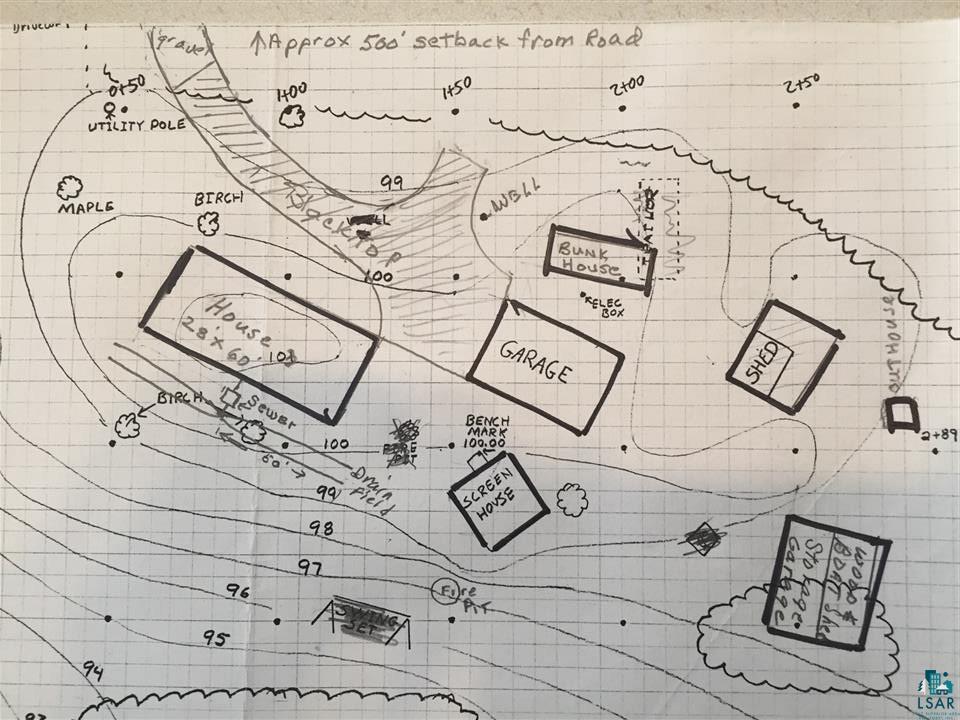 DRIVEWAY
gravel
↑Approx 500' setback from Road
0+50
1+00
1+50
2+00
2+50
UTILITY POLE
MAPLE
BIRCH
99
WELL
Blacktop
WELL
TRAILOR
100
BUNK
HOUSE
ELEC
BOX
House
28' x 60'
101
GARAGE
SHED
OUTHOUSE
2+89
BIRCH
Sewer
60'
100
Drain
Field
FIRE
PIT
BENCH
MARK
100.00
SCREEN
HOUSE
99
98
97
96
95
94
93
Fire
Pit
SWING
SET
Wood &
Boat Shed
Storage
Garage
LSAR